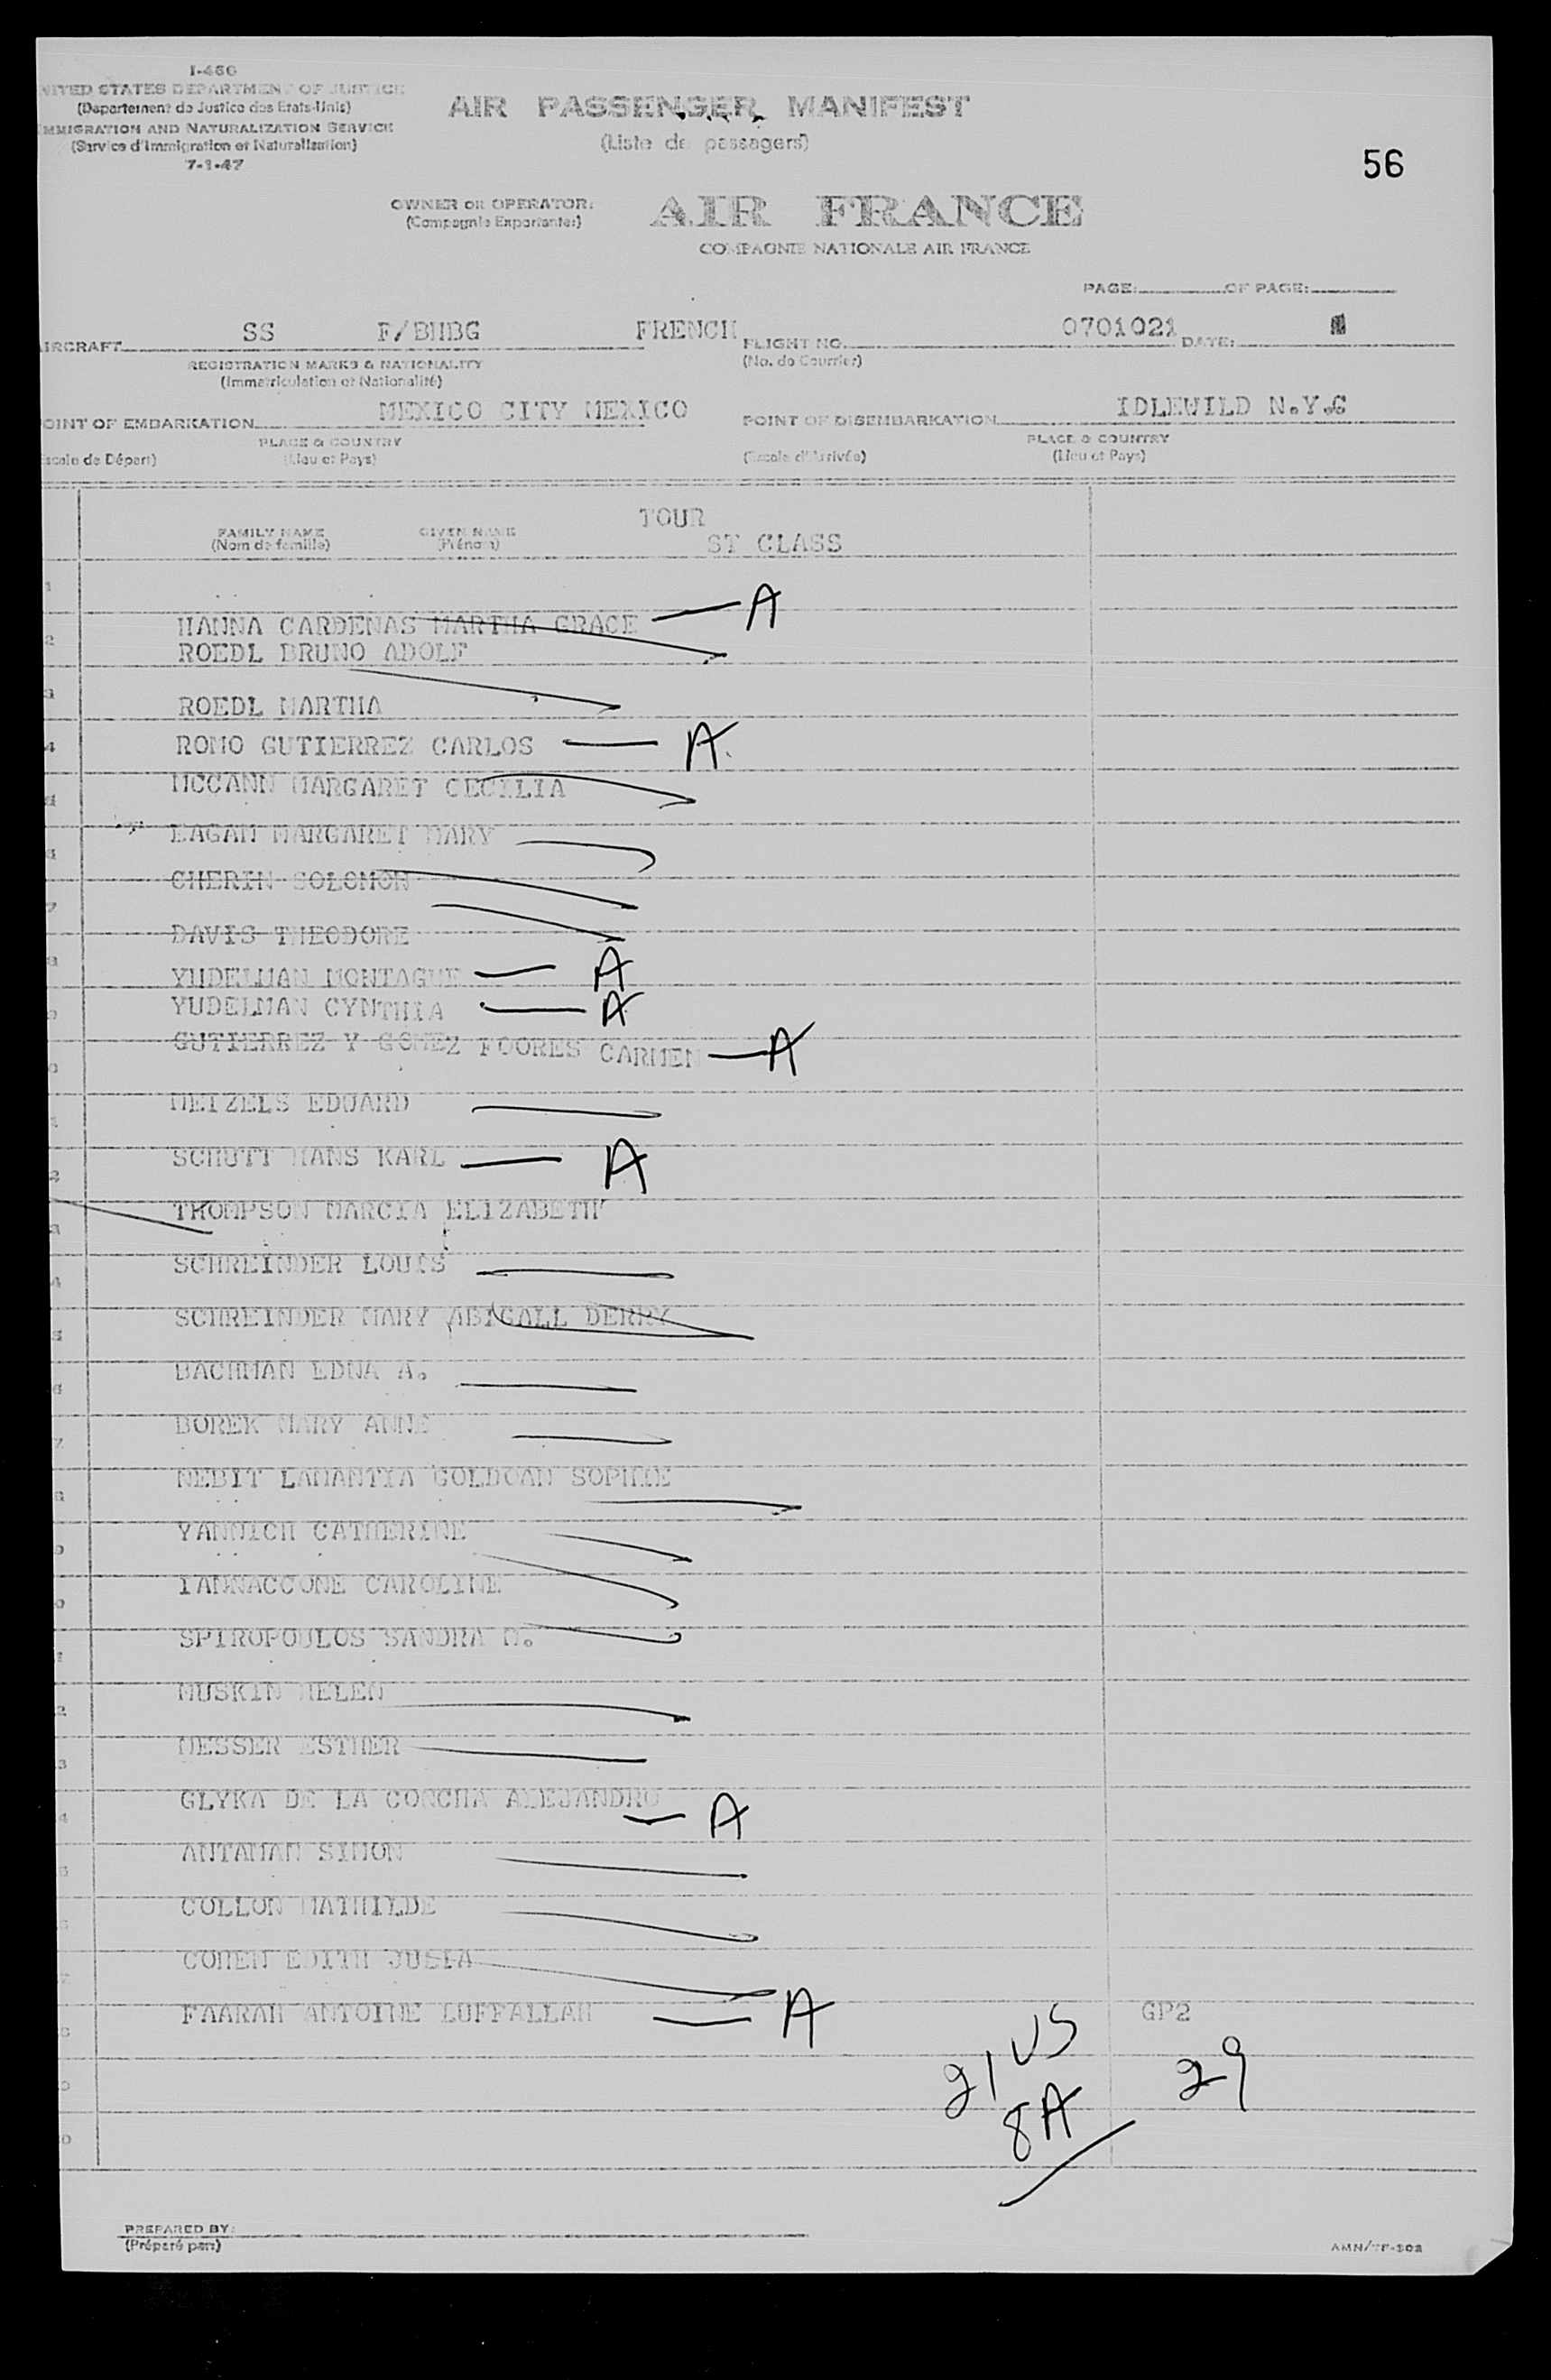 I-466
NITED STATES DEPARTMENT OF JUSTICE
(Departement de Justice des Etats-Unis)
MMIGRATION AND NATURALIZATION SERVICE
(Service d'Immigration et Naturalisation)
7-1-47
AIR PASSENGER MANIFEST
(Liste de passagers)
56
OWNER OR OPERATOR:
(Compagnie Exportante:)
AIR FRANCE
COMPAGNIE NATIONALE AIR FRANCE
PAGE: OF PAGE:
IRCRAFT SS F/BHBG FRENCH FLIGHT NO. 0701021 DATE:
REGISTRATION MARKS & NATIONALITY
(Immatriculation et Nationalité)
(No. de Courrier)
OINT OF EMBARKATION MEXICO CITY MEXICO POINT OF DISEMBARKATION IDLEWILD N.Y.C
PLACE & COUNTRY PLACE & COUNTRY
scale de Départ) (Lieu et Pays) (Escale d'Arrivée) (Lieu et Pays)
TOUR
FAMILY NAME GIVEN NAME
(Nom de famille) (Prénom) ST CLASS
HANNA CARDENAS MARTHA GRACE — A
ROEDL BRUNO ADOLF
ROEDL MARTHA
ROMO GUTIERREZ CARLOS — A
MCCANN MARGARET CECILIA
EAGAN MARGARET MARY
CHERIN SOLOMON
DAVIS THEODORE
YUDELMAN MONTAGUE — A
YUDELMAN CYNTHIA — A
GUTIERREZ Y GOMEZ FOORES CARMEN — A
METZELS EDUARD
SCHUTT HANS KARL — A
THOMPSON MARCIA ELIZABETH
SCHREINDER LOUIS
SCHREINDER MARY ABIGALL DERRY
BACHMAN EDNA A.
BOREK MARY ANNE
NEBIT LAMANTIA GOLDOAN SOPHIE
YANNICH CATHERINE
IANNACCONE CAROLINE
SPIROPOULOS SANDRA M.
MUSKIN HELEN
MESSER ESTHER
GLYKA DE LA CONCHA ALEJANDRO — A
ANTAMAN SIMON
COLLON MATHILDE
COHEN EDITH JUSTA
FAARAH ANTOINE LUFFALLAH — A GP2
21 US 29
8A
PREPARED BY:
(Préparé par:)
AMN/TF-302